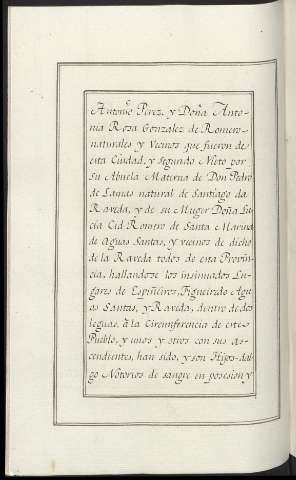 Antonio Perez, y Doña Anto-
nia Rosa Gonzalez de Romero
naturales y Vecinos que fueron de
esta Ciudad, y segundo Nieto por
su Abuela Materna de Don Pedro
de Lamas natural de Santiago da
Raveda, y de su Muger Doña Lu-
cia Cid Romero de Santa Marina
de Aguas Santas, y vecinos de dicho
de la Raveda todos de esta Provin-
cia, hallandose los insinuados Lu-
gares de Espiñeiros, Figueirdo Agu-
as Santas, y Raveda, dentro de dos
leguas, à la Circumferencia de este
Pueblo, y unos y otros con sus as-
cendientes, han sido, y son Hijos-dal-
go Notorios de sangre en posesion y